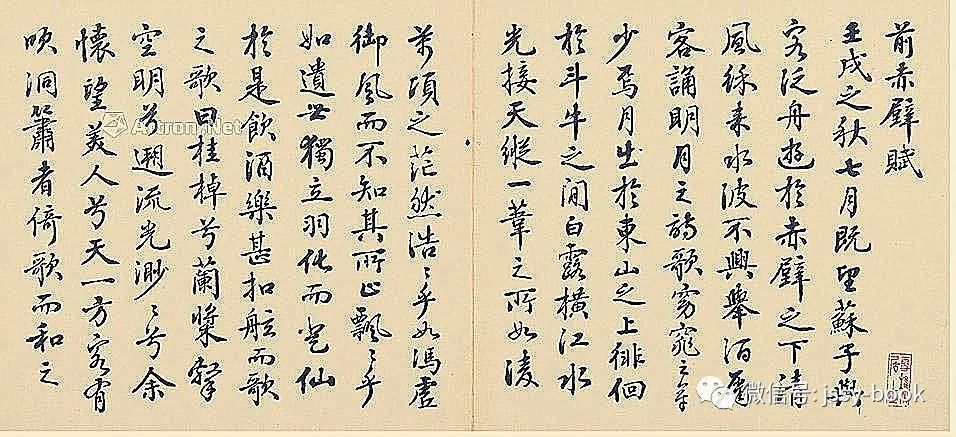 前赤壁賦
壬戌之秋七月既望蘇子與
客泛舟遊於赤壁之下清
風徐来水波不興舉酒屬
客誦明月之詩歌窈窕之章
少焉月出於東山之上徘徊
於斗牛之間白露橫江水
光接天縱一葦之所如淩
萬頃之茫然浩〻乎如馮虛
御風而不知其所止飄〻乎
如遺世獨立羽化而登仙
於是飲酒樂甚扣舷而歌
之歌曰桂棹兮蘭槳擊
空明兮遡流光渺〻兮余
懷望美人兮天一方客有
吹洞簫者倚歌而和之
Artron.Net
微信号: jssy-book